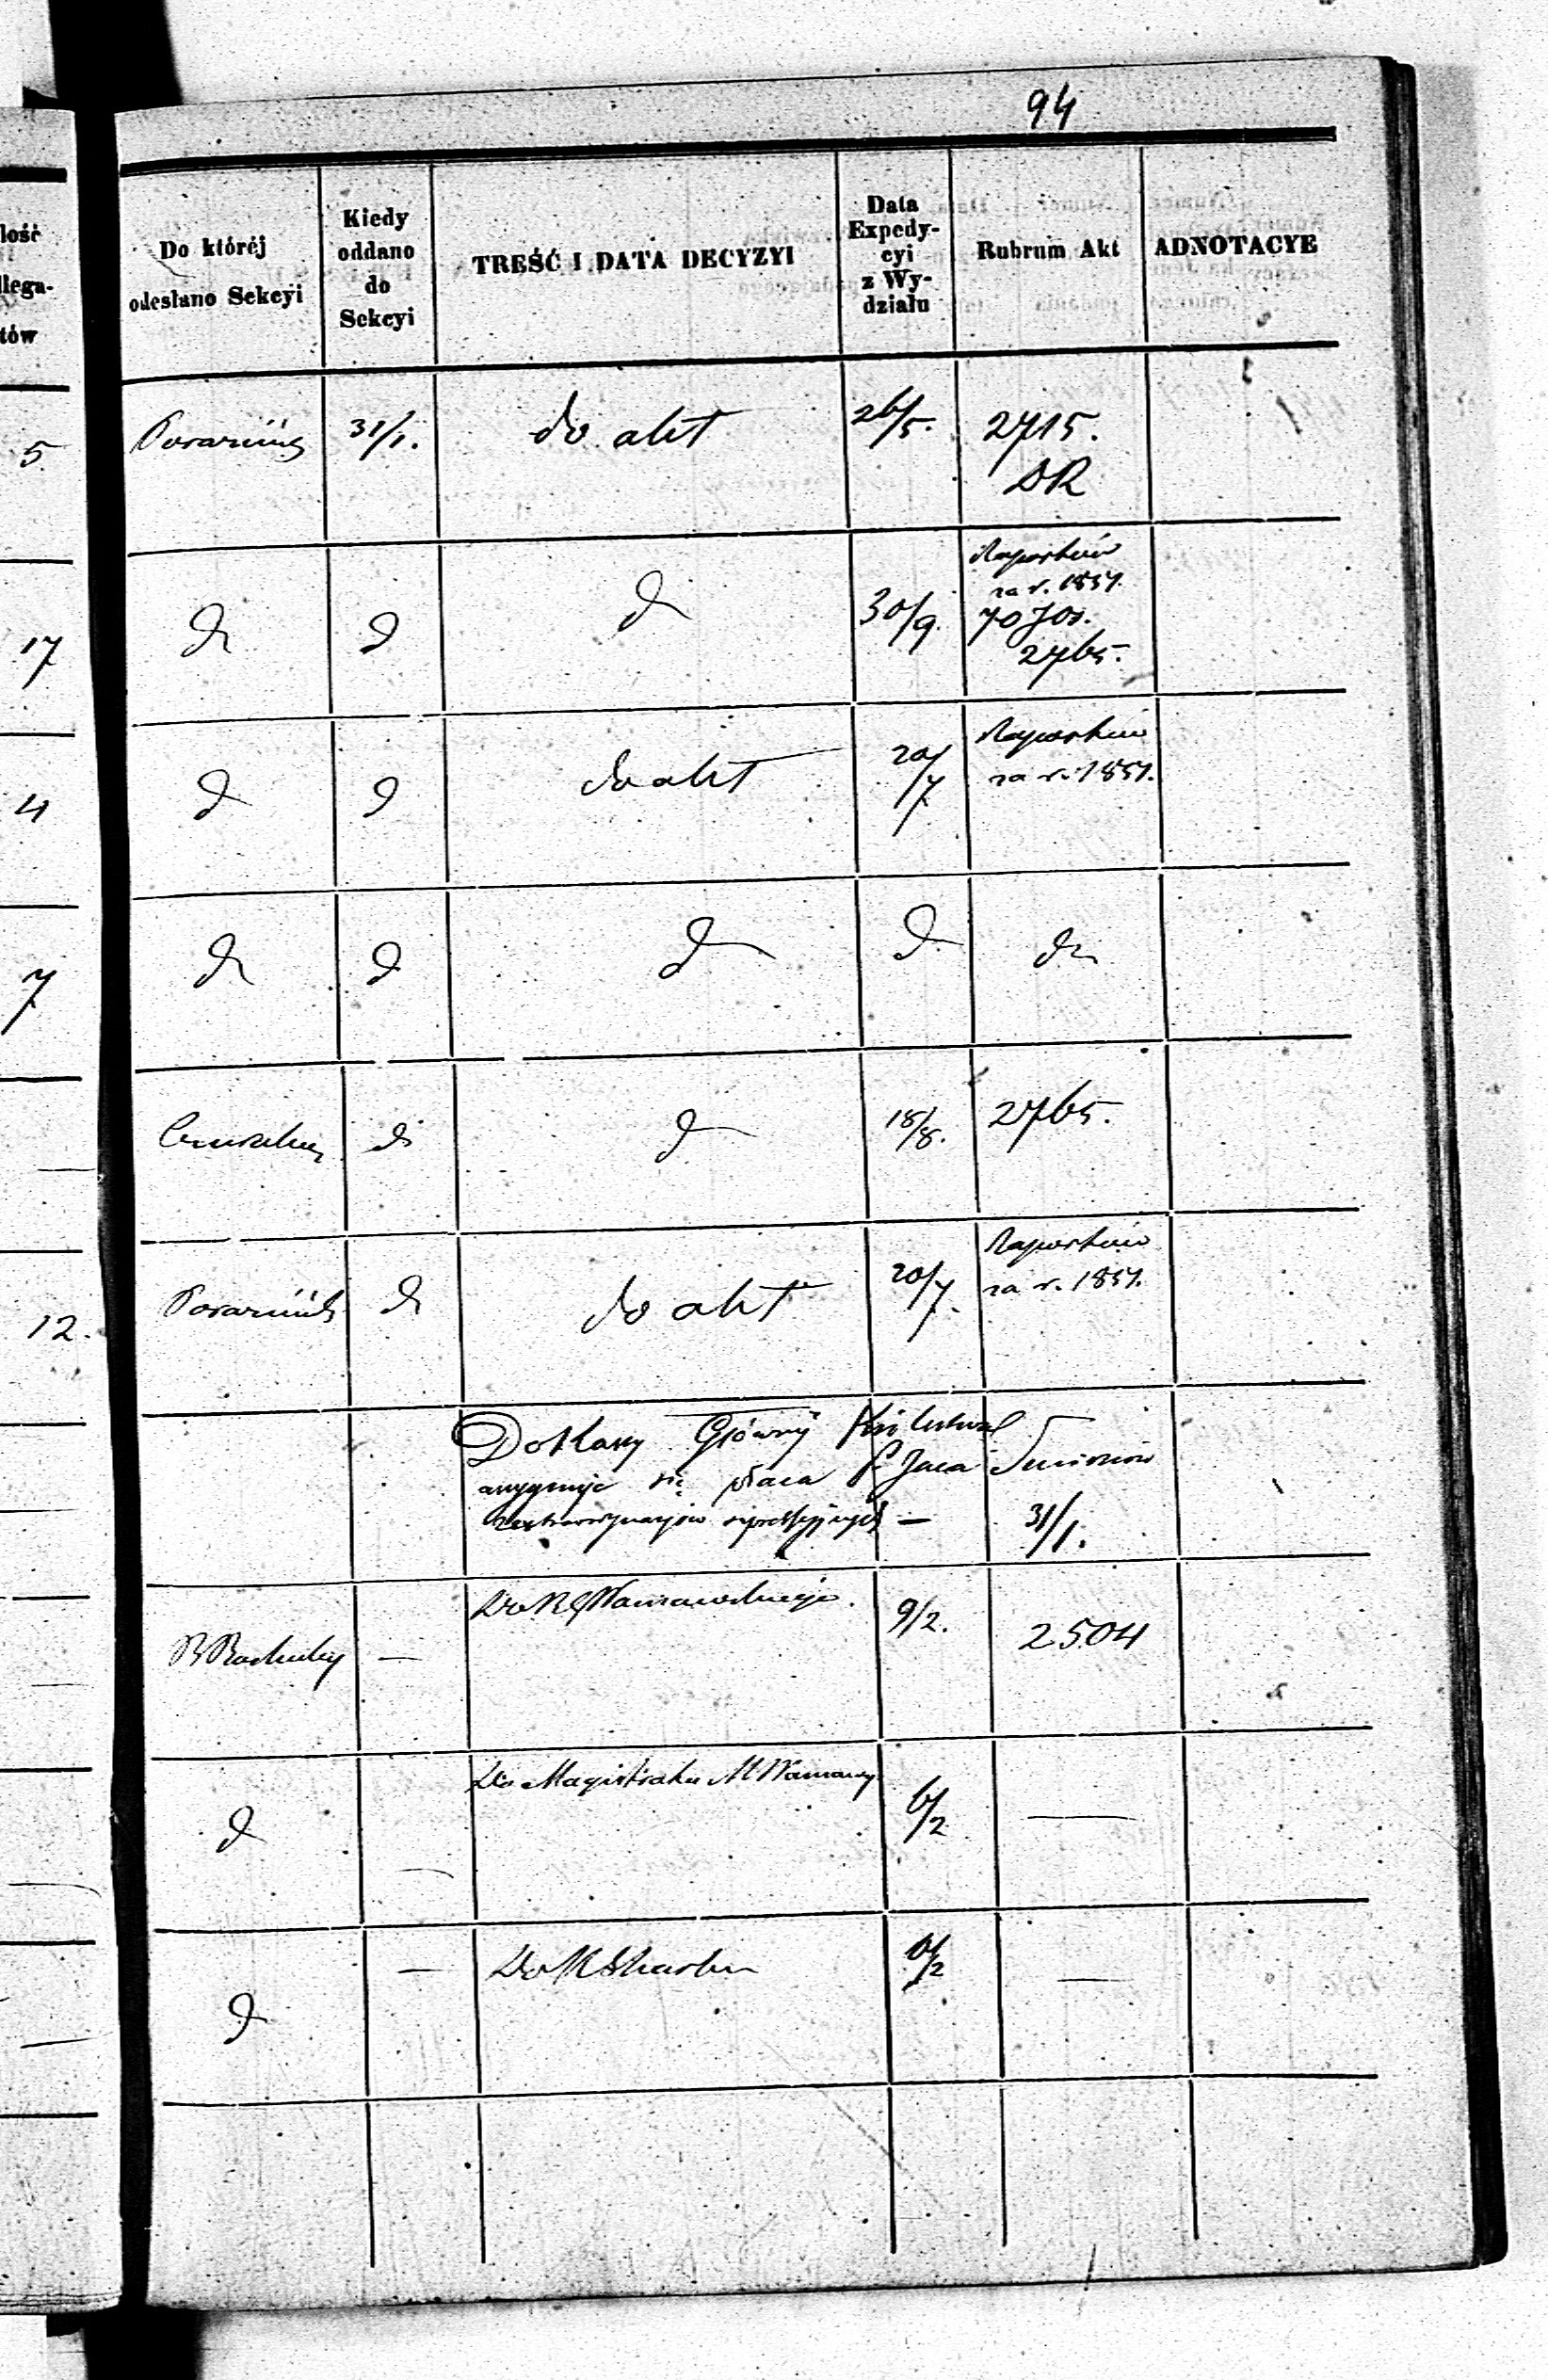 94
lość
llega-
tów
Do któréj
odesłano Sekcyi
Kiedy
oddano
do
Sekcyi
TREŚĆ I DATA DECYZYI
Data
Expedy-
cyi
z Wy-
działu
Rubrum Akt
ADNOTACYE
5
31/1.
do akt
26/5.
2715.
DR
17
d
d
d
30/9.
Raportów
za r. 1857.
2765.
4
d
d
do akt
20/7
Raportów
za r. 1857.
7
d
d
d
d
d
d
d
18/8.
2765.
12.
d
do akt
20/7.
Raportów
za r. 1857.
Do Kassy Główny
się płaca
31/1.
—
Do RG Warszawskiego.
9/2.
2504
d
—
Do Magistratu M Warszawy
6/2
—
d
—
Do K Skarbu
6/2
—